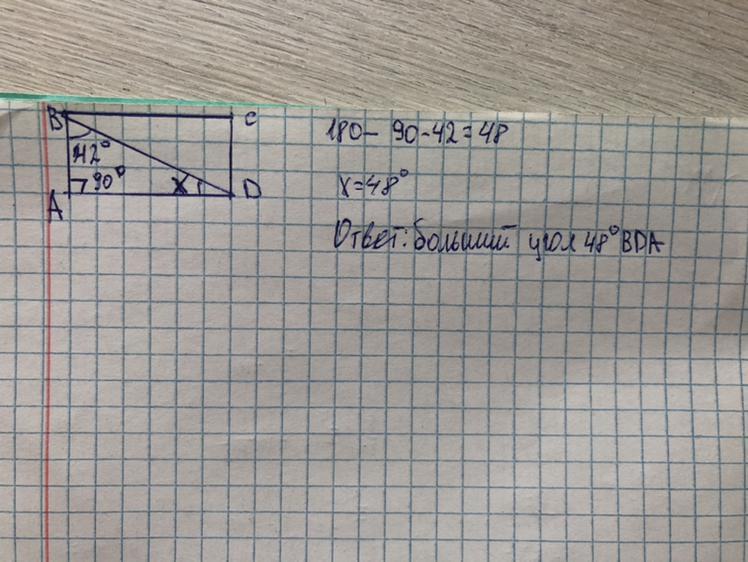 B C
42°
90° x D
A
180- 90-42=48
x=48°
Ответ: больший угол 48° BDA